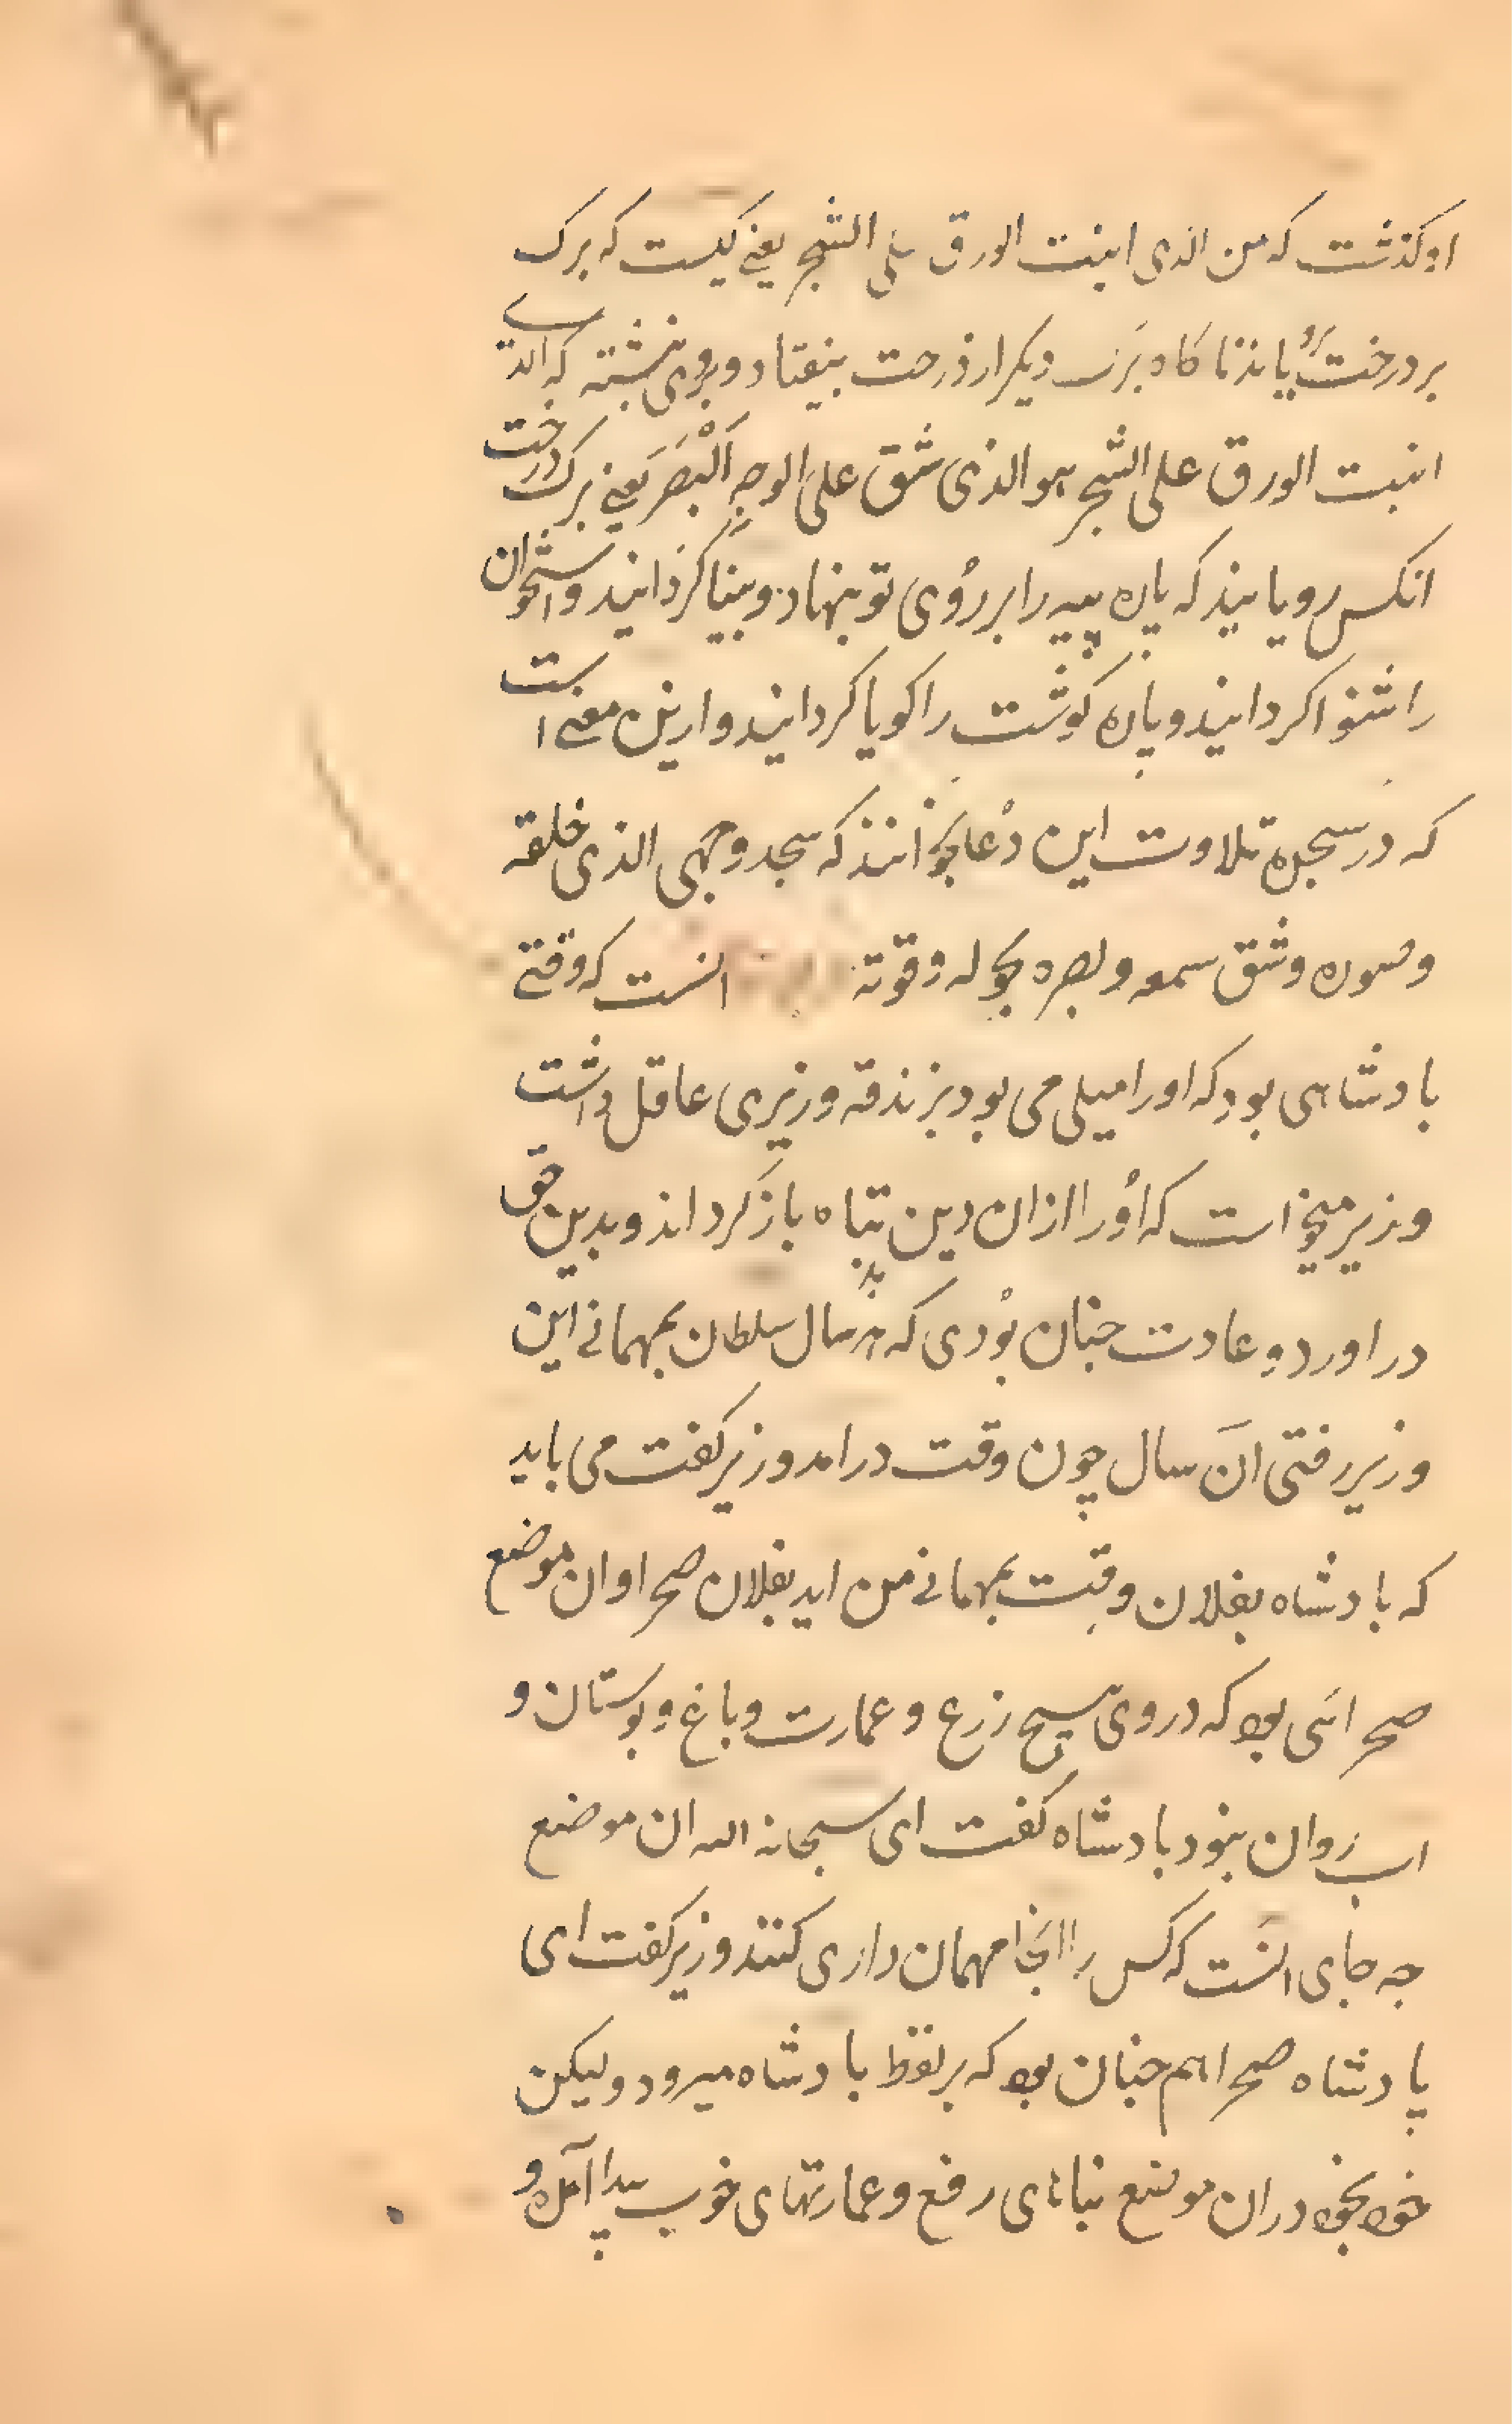 او كذشت كه من الذى انبت الورق على الشجر يعنے كيست كه برك
بر درخت رويانذ ناكاه بركے ديكر از درخت بيفتاد و بروى نبشته كه الذے
انبت الورق على الشجر هو الذى شق على الوجهِ اَلْبَصَرَ يعنے برك درخت
انكس رويانيد كه ياره پيه را بر رُوى تو بنهاد و بينا كردانيد و استخوان
را شنوا كردانيد و پاره كوشت را كويا كردانيد و ازين معنے است
كه در سجده تلاوت اين دُعا بخوانند كه سجد وجهى الذى خلقه
و صوره و شق سمعه و بصره بحوله و قوته انست كه وقتے
بادشاهى بود كه اورا ميلى مى بود بزندقه وزيرى عاقل داشت
وزير ميخواست كه اُورا ازان دين تباه باز كرداند و بدين حق
در اورد و عادت جنان بُودى كه هر سال سلطان بمهمانے اين
وزير رفتى ان سال چون وقت درامد وزير كفت مى بايد
كه بادشاه بفلان وقت بمهمانے من ايد بفلان صحرا و ان موضع
صحرائى بود كه در وى هيچ زرع و عمارت و باغ و بوستان و
اب روان نبود بادشاه كفت اى سبحانه الله ان موضع
جه جاى انست كه كس را انجا مهمان دارى كنند وزير كفت اى
پادشاه صحرا هم جنان بود كه بر لفظ بادشاه ميرود و ليكن
خود بخود دران موضع بناهاى رفع و عمارتهاى خوب پيدا آمده و